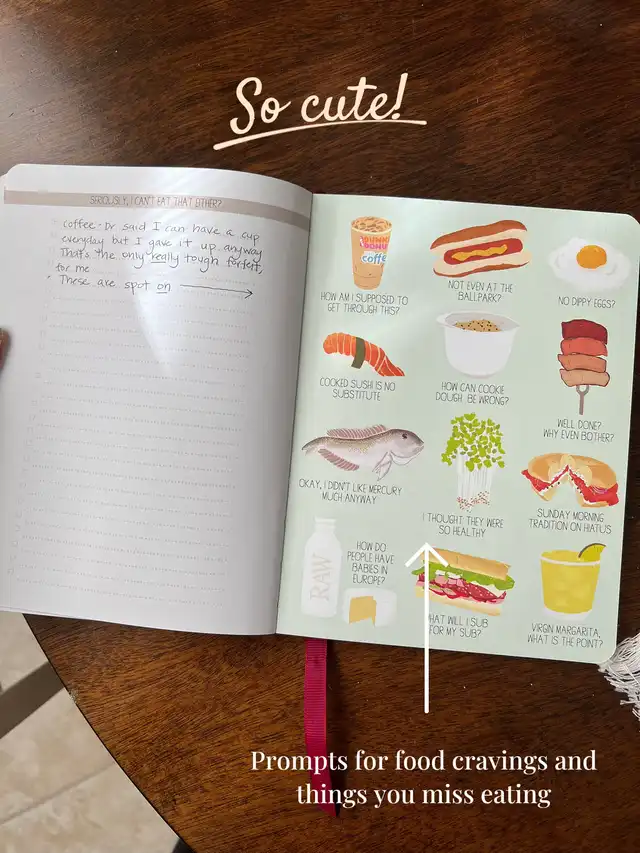 So cute!
SERIOUSLY, I CAN'T EAT THAT EITHER?
coffee - Dr said I can have a cup
everyday but I gave it up anyway
That's the only really tough forfeit,
for me
• These are spot on
DUNKIN'
DONUTS
coffee
HOW AM I SUPPOSED TO
GET THROUGH THIS?
NOT EVEN AT THE
BALLPARK?
NO DIPPY EGGS?
COOKED SUSHI IS NO
SUBSTITUTE
HOW CAN COOKIE
DOUGH BE WRONG?
WELL DONE?
WHY EVEN BOTHER?
OKAY, I DIDN'T LIKE MERCURY
MUCH ANYWAY
I THOUGHT THEY WERE
SO HEALTHY
SUNDAY MORNING
TRADITION ON HIATUS
RAW
HOW DO
PEOPLE HAVE
BABIES IN
EUROPE?
WHAT WILL I SUB
FOR MY SUB?
VIRGIN MARGARITA,
WHAT IS THE POINT?
Prompts for food cravings and
things you miss eating